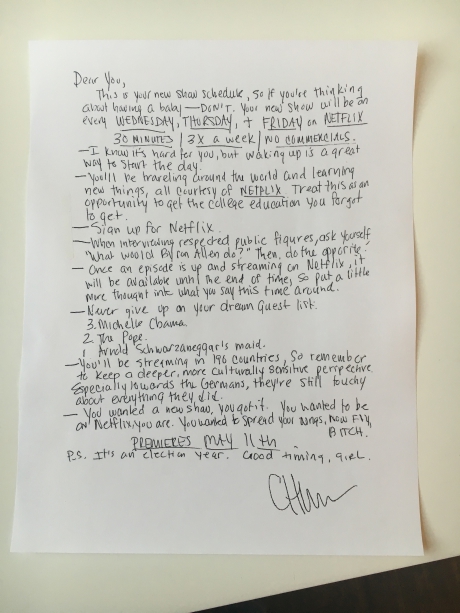 Dear You,
This is your new show schedule, so if you're thinking
about having a baby — DON'T. Your new show will be on
every WEDNESDAY, THURSDAY, + FRIDAY on NETFLIX
30 MINUTES / 3X a week / NO COMMERCIALS.
— I know it's hard for you, but waking up is a great
way to start the day.
— You'll be traveling around the world and learning
new things, all courtesy of NETFLIX. Treat this as an
opportunity to get the college education you forgot
to get.
— Sign up for Netflix.
— When interviewing respected public figures, ask yourself
"What would Byron Allen do?" Then, do the opposite.
— Once an episode is up and streaming on Netflix, it
will be available until the end of time, so put a little
more thought into what you say this time around.
— Never give up on your dream guest list.
3. Michelle Obama
2. The Pope
1. Arnold Schwarzaneggar's maid.
— You'll be streaming in 190 countries, so remember
to keep a deeper, more culturally sensitive perspective
Especially towards the Germans, they're still touchy
about everything they did.
— You wanted a new show, you got it. You wanted to be
on Netflix, you are. You wanted to spread your wings, now FLY,
BITCH.
PREMIERES MAY 11th.
P.S. It's an election year. Good timing, girl.